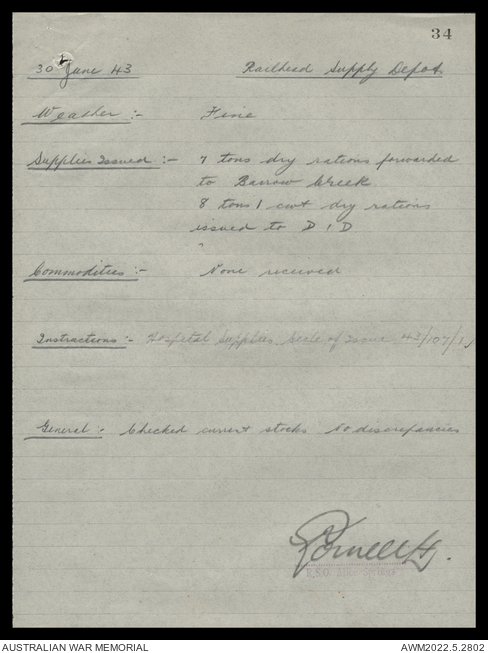 34
30 June 43 Railhead Supply Depot.
Weather :- Fine
Supplies Issued :- 7 tons dry rations forwarded
to Barrow Creek
8 tons 1 cwt dry rations
issued to D I D
Commodities :- None received
Instructions :- Hospital Supplies. Scale of Issue 43/107/1
General :- Checked current stocks No discrepancies
AUSTRALIAN WAR MEMORIAL AWM2022.5.2802